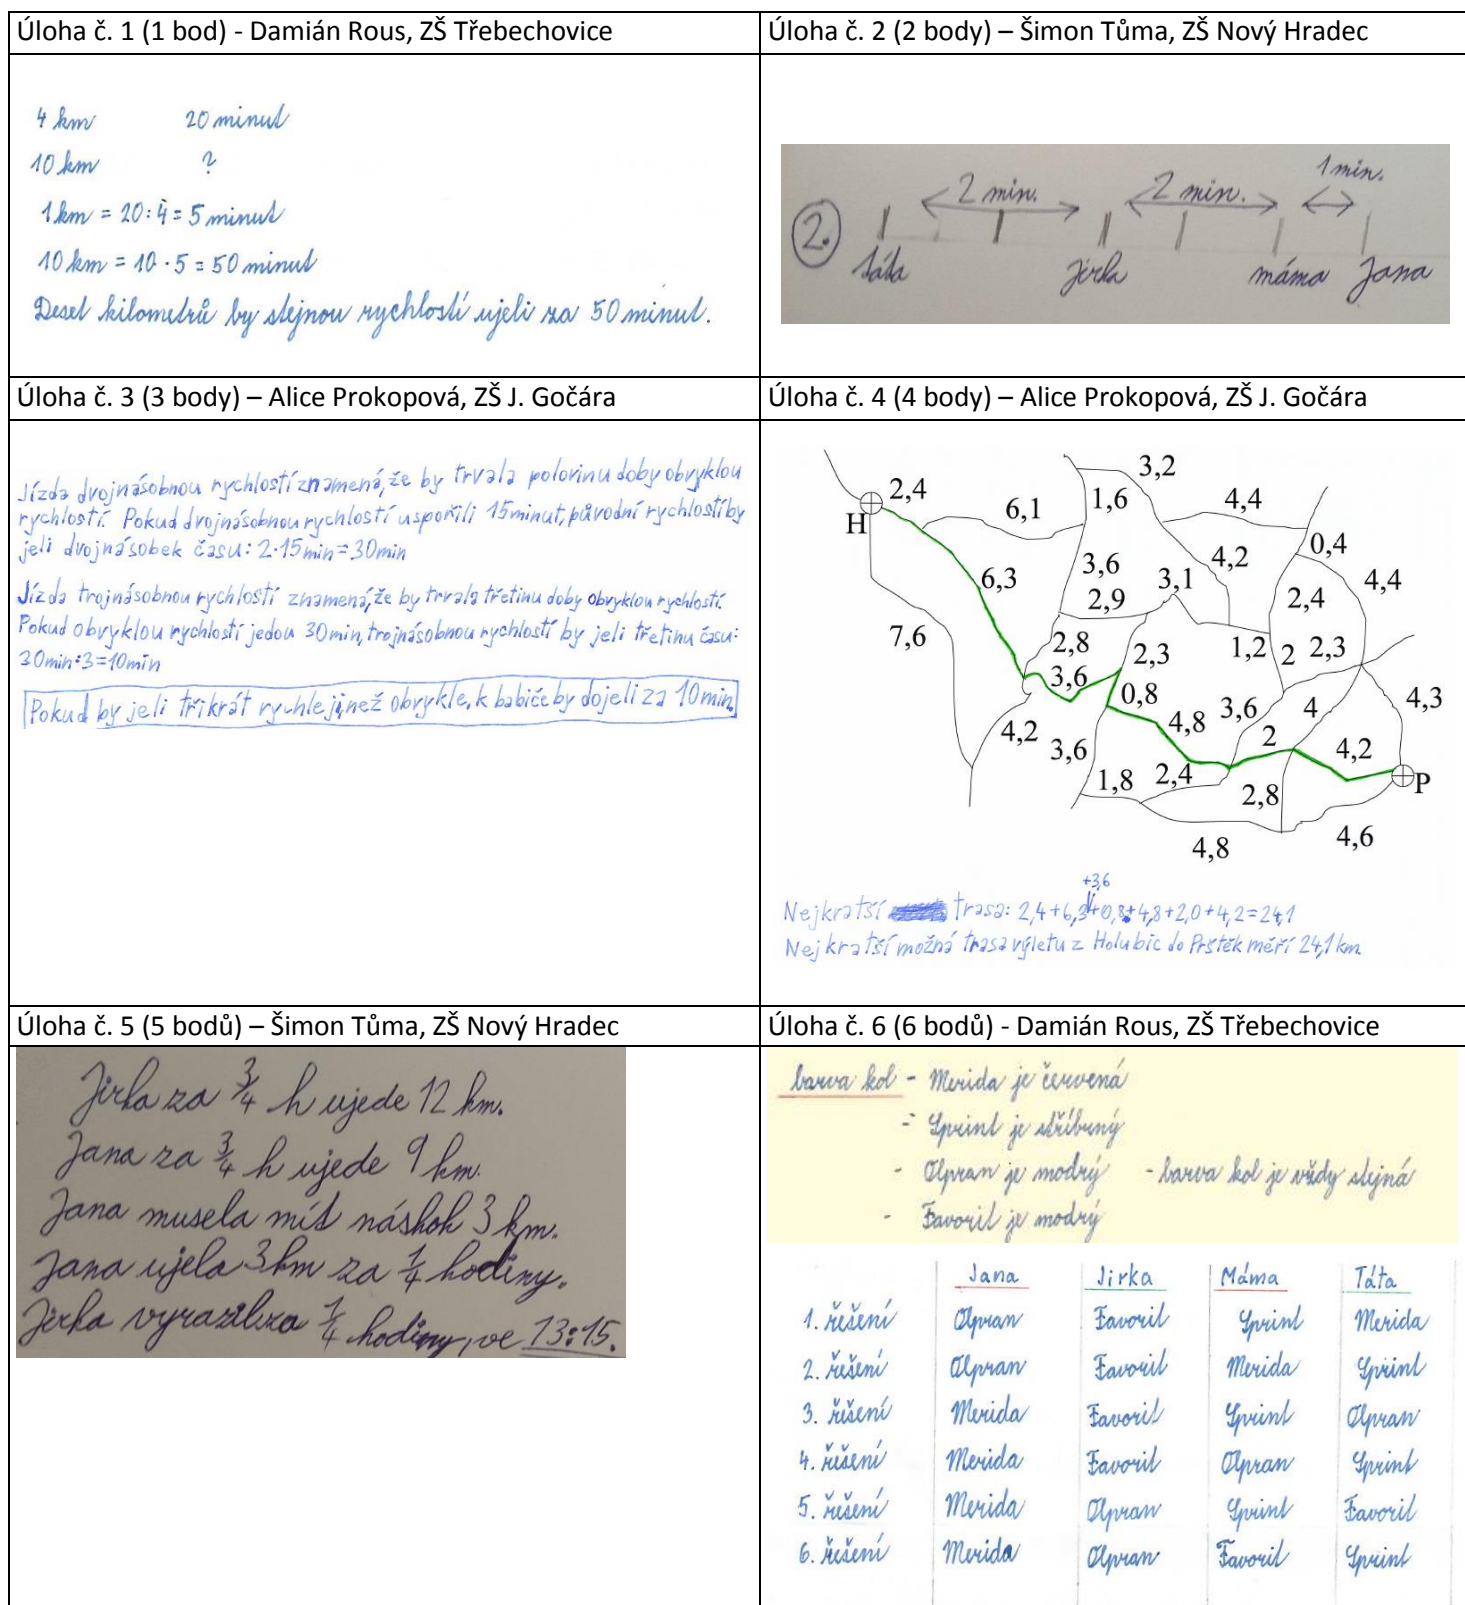 Úloha č. 1 (1 bod) - Damián Rous, ZŠ Třebechovice
4 km 20 minut
10 km ?
1 km = 20 : 4 = 5 minut
10 km = 10 · 5 = 50 minut
Deset kilometrů by stejnou rychlostí ujeli za 50 minut.
Úloha č. 2 (2 body) – Šimon Tůma, ZŠ Nový Hradec
2 min. 2 min. 1 min.
2.
táta Jirka máma Jana
Úloha č. 3 (3 body) – Alice Prokopová, ZŠ J. Gočára
Jízda dvojnásobnou rychlostí znamená, že by trvala polovinu doby obvyklou
rychlostí. Pokud dvojnásobnou rychlostí uspořili 15 minut, původní rychlostí by
jeli dvojnásobek času: 2·15min=30min
Jízda trojnásobnou rychlostí znamená, že by trvala třetinu doby obvyklou rychlostí.
Pokud obvyklou rychlostí jedou 30min, trojnásobnou rychlostí by jeli třetinu času:
30min:3=10min
Pokud by jeli třikrát rychleji, než obvykle, k babičce by dojeli za 10min.
Úloha č. 4 (4 body) – Alice Prokopová, ZŠ J. Gočára
3,2
2,4
6,1
1,6
4,4
H
0,4
6,3
3,6
3,1
4,2
4,4
2,9
2,4
7,6
2,8
2,3
1,2
2
2,3
3,6
0,8
4,3
4,8
3,6
4
4,2
3,6
2
4,2
1,8
2,4
2,8
P
4,8
4,6
+3,6
Nejkratší trasa: 2,4+6,3+0,8+4,8+2,0+4,2=24,1
Nejkratší možná trasa výletu z Holubic do Prštěk měří 24,1 km.
Úloha č. 5 (5 bodů) – Šimon Tůma, ZŠ Nový Hradec
Jirka za 3/4 h ujede 12 km.
Jana za 3/4 h ujede 9 km.
Jana musela mít náskok 3 km.
Jana ujela 3 km za 1/4 hodiny.
Jirka vyrazil za 1/4 hodiny, ve 13:15.
Úloha č. 6 (6 bodů) - Damián Rous, ZŠ Třebechovice
barva kol - Merida je červená
- Sprint je stříbrný
- Olpran je modrý - barva kol je vždy stejná
- Favoril je modrý
Jana Jirka Máma Táta
1. řešení Olpran Favoril Sprint Merida
2. řešení Olpran Favoril Merida Sprint
3. řešení Merida Favoril Sprint Olpran
4. řešení Merida Favoril Olpran Sprint
5. řešení Merida Olpran Sprint Favoril
6. řešení Merida Olpran Favoril Sprint